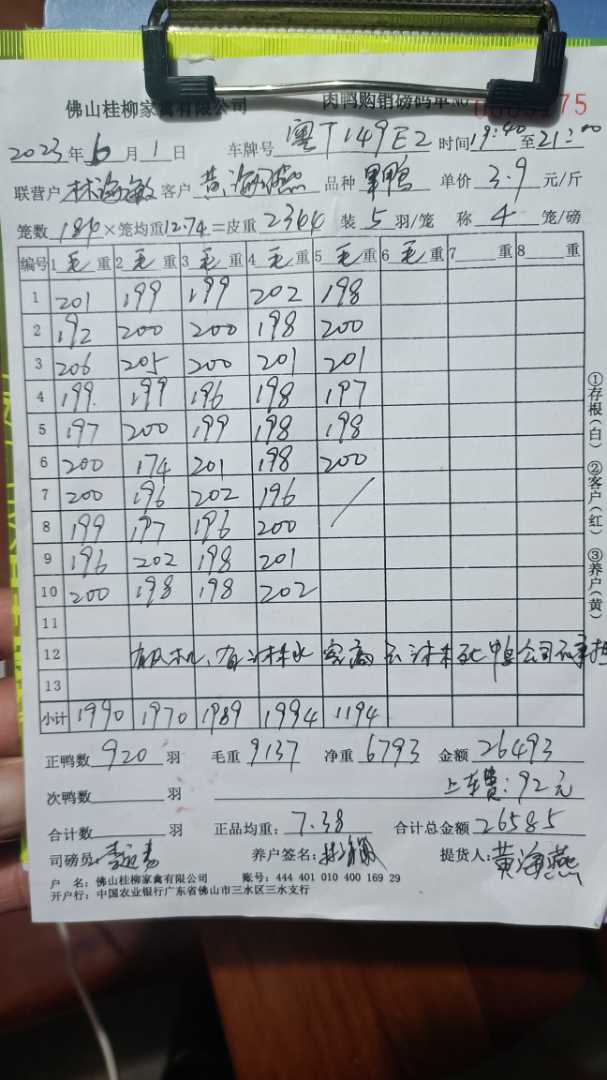 佛山桂柳家禽有限公司 肉鸭购销磅码单
2023年6月1日 车牌号 粤T149E2 时间19:40至21:00
联营户 林海敏 客户 黄海燕 品种 单鸭 单价 3.9 元/斤
笼数 184 ×笼均重12.74=皮重 2344 装 5 羽/笼 称 4 笼/磅
编号 1 毛 重 2 毛 重 3 毛 重 4 毛 重 5 毛 重 6 毛 重 7 重 8 重
1 201 199 199 202 198
2 192 200 200 198 200
3 206 205 200 201 201
4 199 199 196 198 197
5 197 200 199 198 198
6 200 174 201 198 200
7 200 196 202 196 /
8 199 197 196 200
9 196 202 198 201
10 200 198 198 202
11
12 公司不承担
13
小计 1990 1970 1989 1994 1194
正鸭数 920 羽 毛重 9137 净重 6793 金额 26493
次鸭数 羽 上车费:92元
合计数 羽 正品均重: 7.38 合计总金额 26585
司磅员: 养户签名: 提货人: 黄海燕
户 名: 佛山桂柳家禽有限公司 账号: 444 401 010 400 169 29
开户行: 中国农业银行广东省佛山市三水区三水支行
①存根(白) ②客户(红) ③养户(黄)